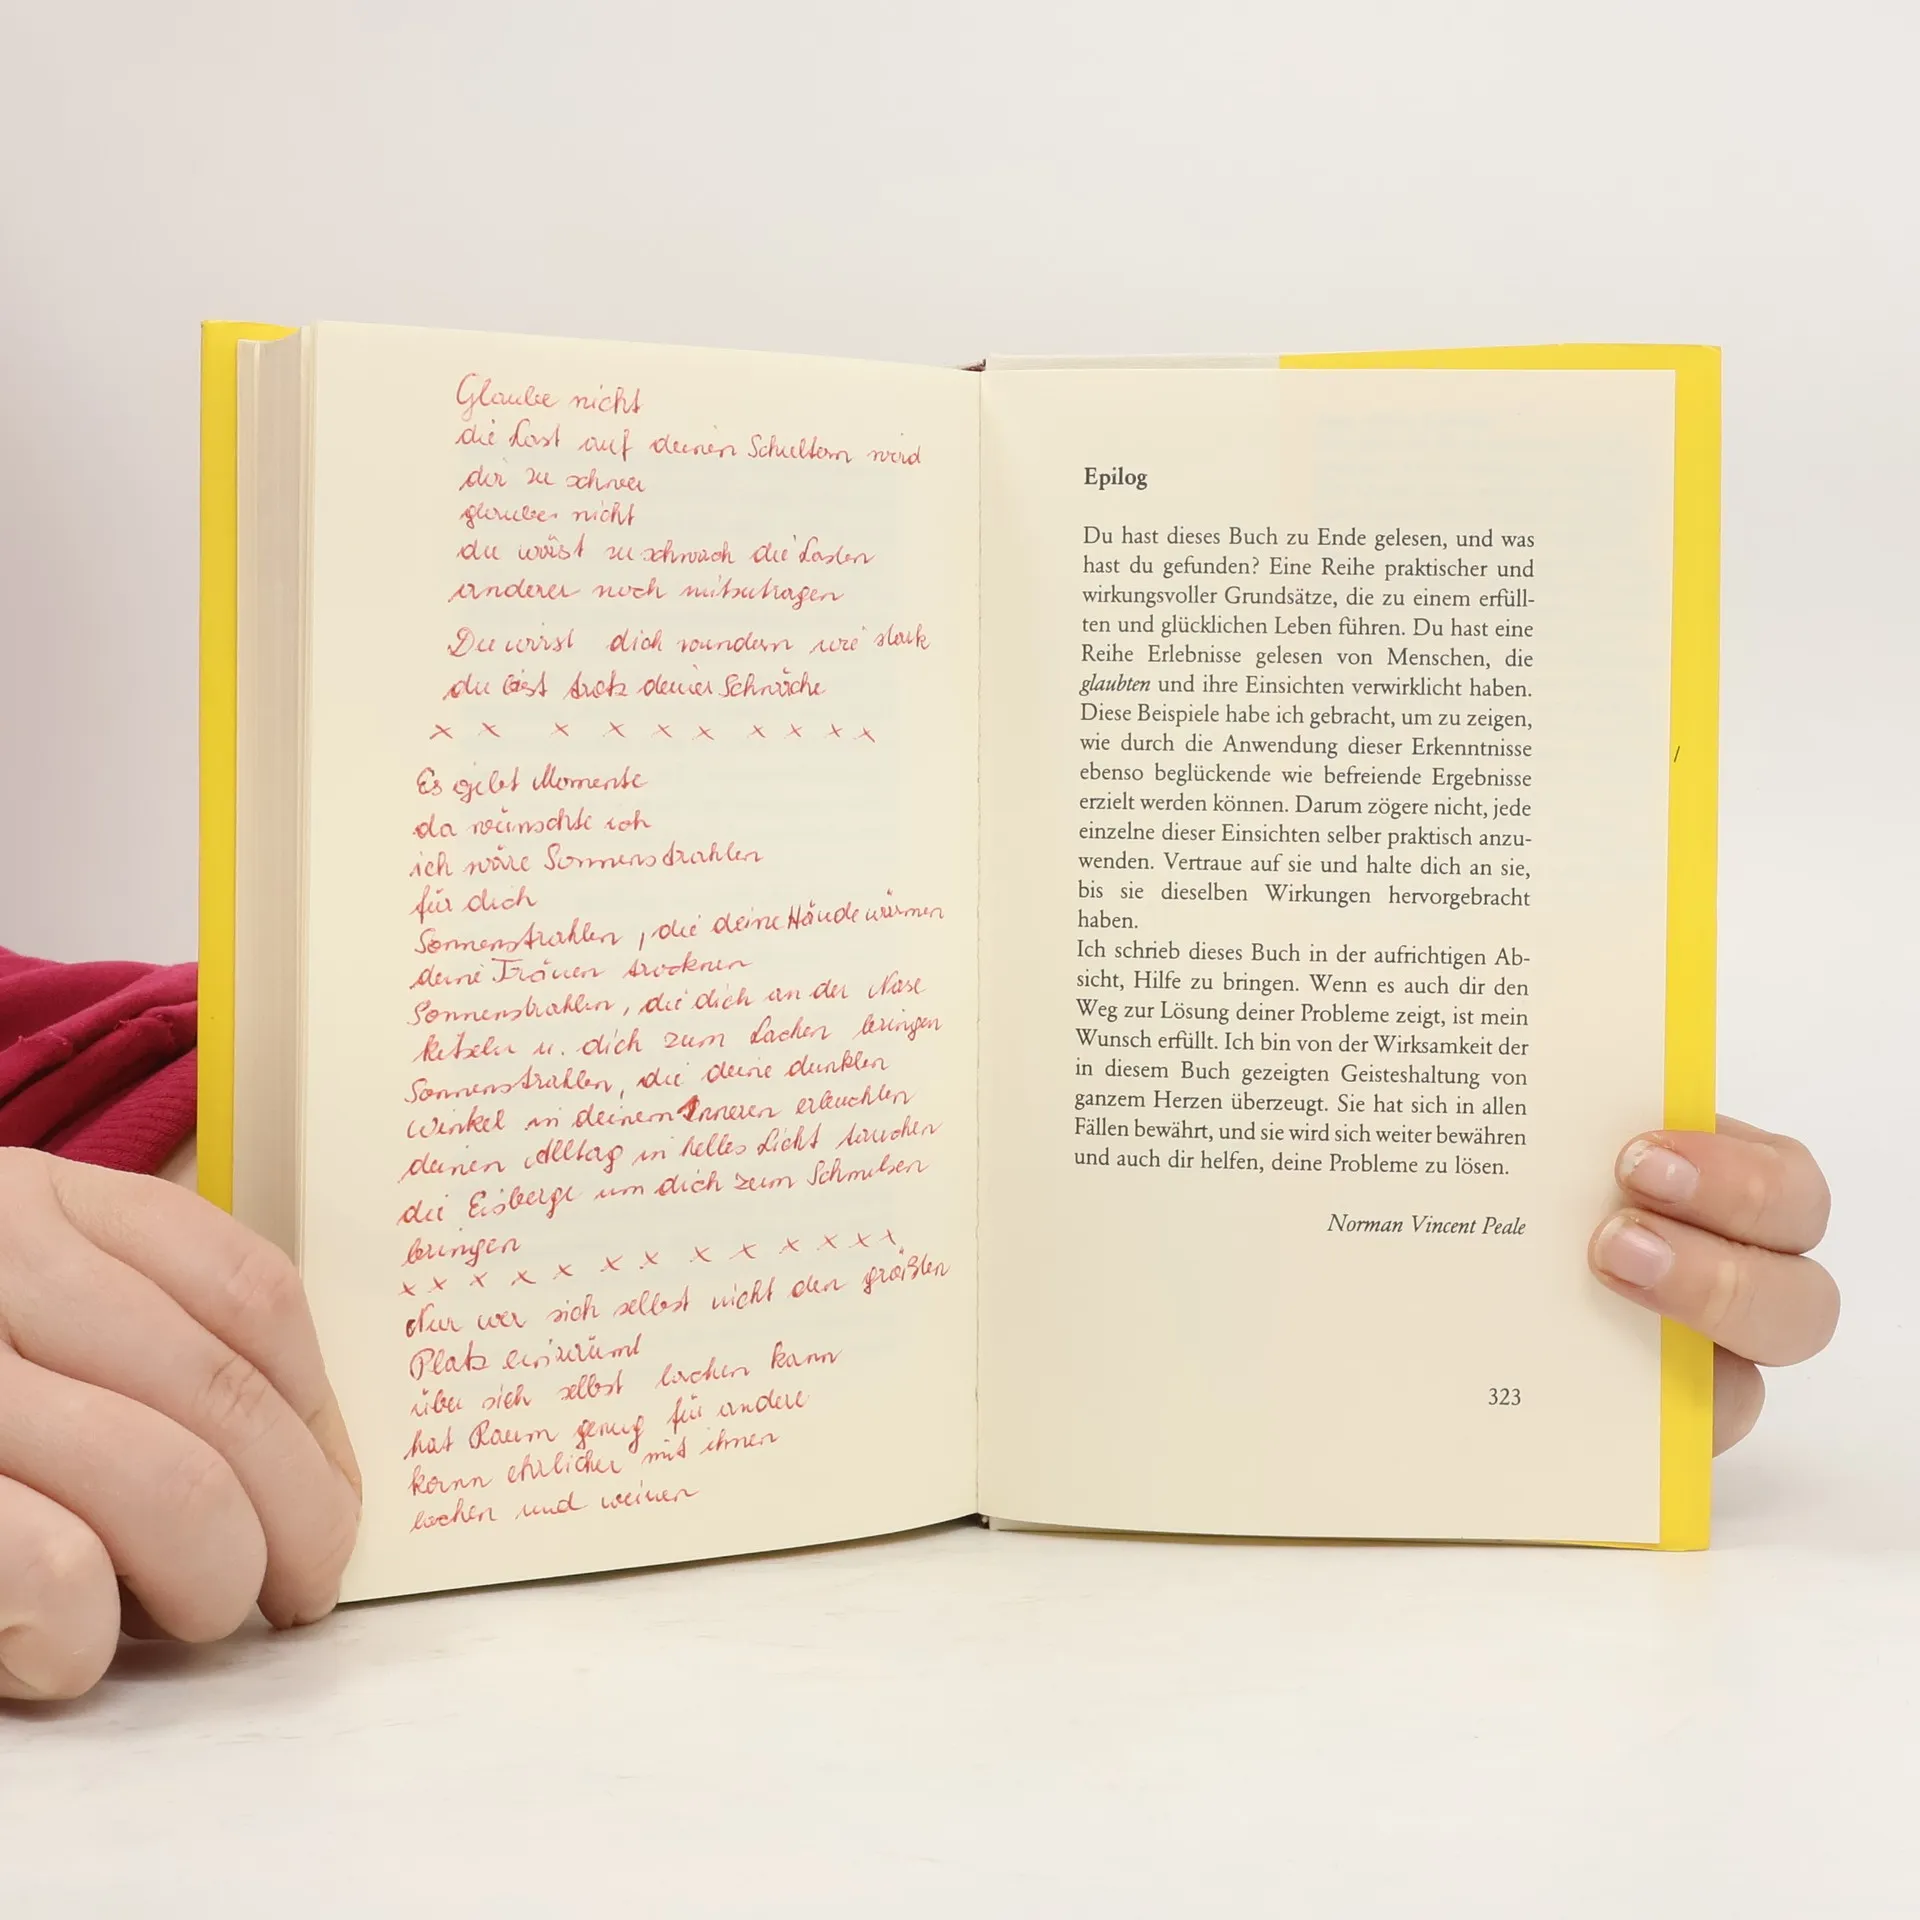 Glaube nicht
die Last auf deinen Schultern wird
dir zu schwer
glaube nicht
du wärst zu schwach die Lasten
anderer noch mitzutragen
Du wirst dich wundern wie stark
du bist trotz deiner Schwäche
x x x x x x x x x x
Es gibt Momente
da wünschte ich
ich wäre Sonnenstrahlen
für dich
Sonnenstrahlen, die deine Hände wärmen
deine Tränen trocknen
Sonnenstrahlen, die dich an der Nase
kitzeln u. dich zum Lachen bringen
Sonnenstrahlen, die deine dunklen
Winkel in deinem Inneren erleuchten
deinen Alltag in helles Licht tauchen
die Eisberge um dich zum Schmelzen
bringen
x x x x x x x x x x x x x
Nur wer sich selbst nicht den größten
Platz einräumt
über sich selbst lachen kann
hat Raum genug für andere
kann ehrlicher mit ihnen
lachen und weinen
Epilog
Du hast dieses Buch zu Ende gelesen, und was
hast du gefunden? Eine Reihe praktischer und
wirkungsvoller Grundsätze, die zu einem erfüll-
ten und glücklichen Leben führen. Du hast eine
Reihe Erlebnisse gelesen von Menschen, die
glaubten und ihre Einsichten verwirklicht haben.
Diese Beispiele habe ich gebracht, um zu zeigen,
wie durch die Anwendung dieser Erkenntnisse
ebenso beglückende wie befreiende Ergebnisse
erzielt werden können. Darum zögere nicht, jede
einzelne dieser Einsichten selber praktisch anzu-
wenden. Vertraue auf sie und halte dich an sie,
bis sie dieselben Wirkungen hervorgebracht
haben.
Ich schrieb dieses Buch in der aufrichtigen Ab-
sicht, Hilfe zu bringen. Wenn es auch dir den
Weg zur Lösung deiner Probleme zeigt, ist mein
Wunsch erfüllt. Ich bin von der Wirksamkeit der
in diesem Buch gezeigten Geisteshaltung von
ganzem Herzen überzeugt. Sie hat sich in allen
Fällen bewährt, und sie wird sich weiter bewähren
und auch dir helfen, deine Probleme zu lösen.
Norman Vincent Peale
323